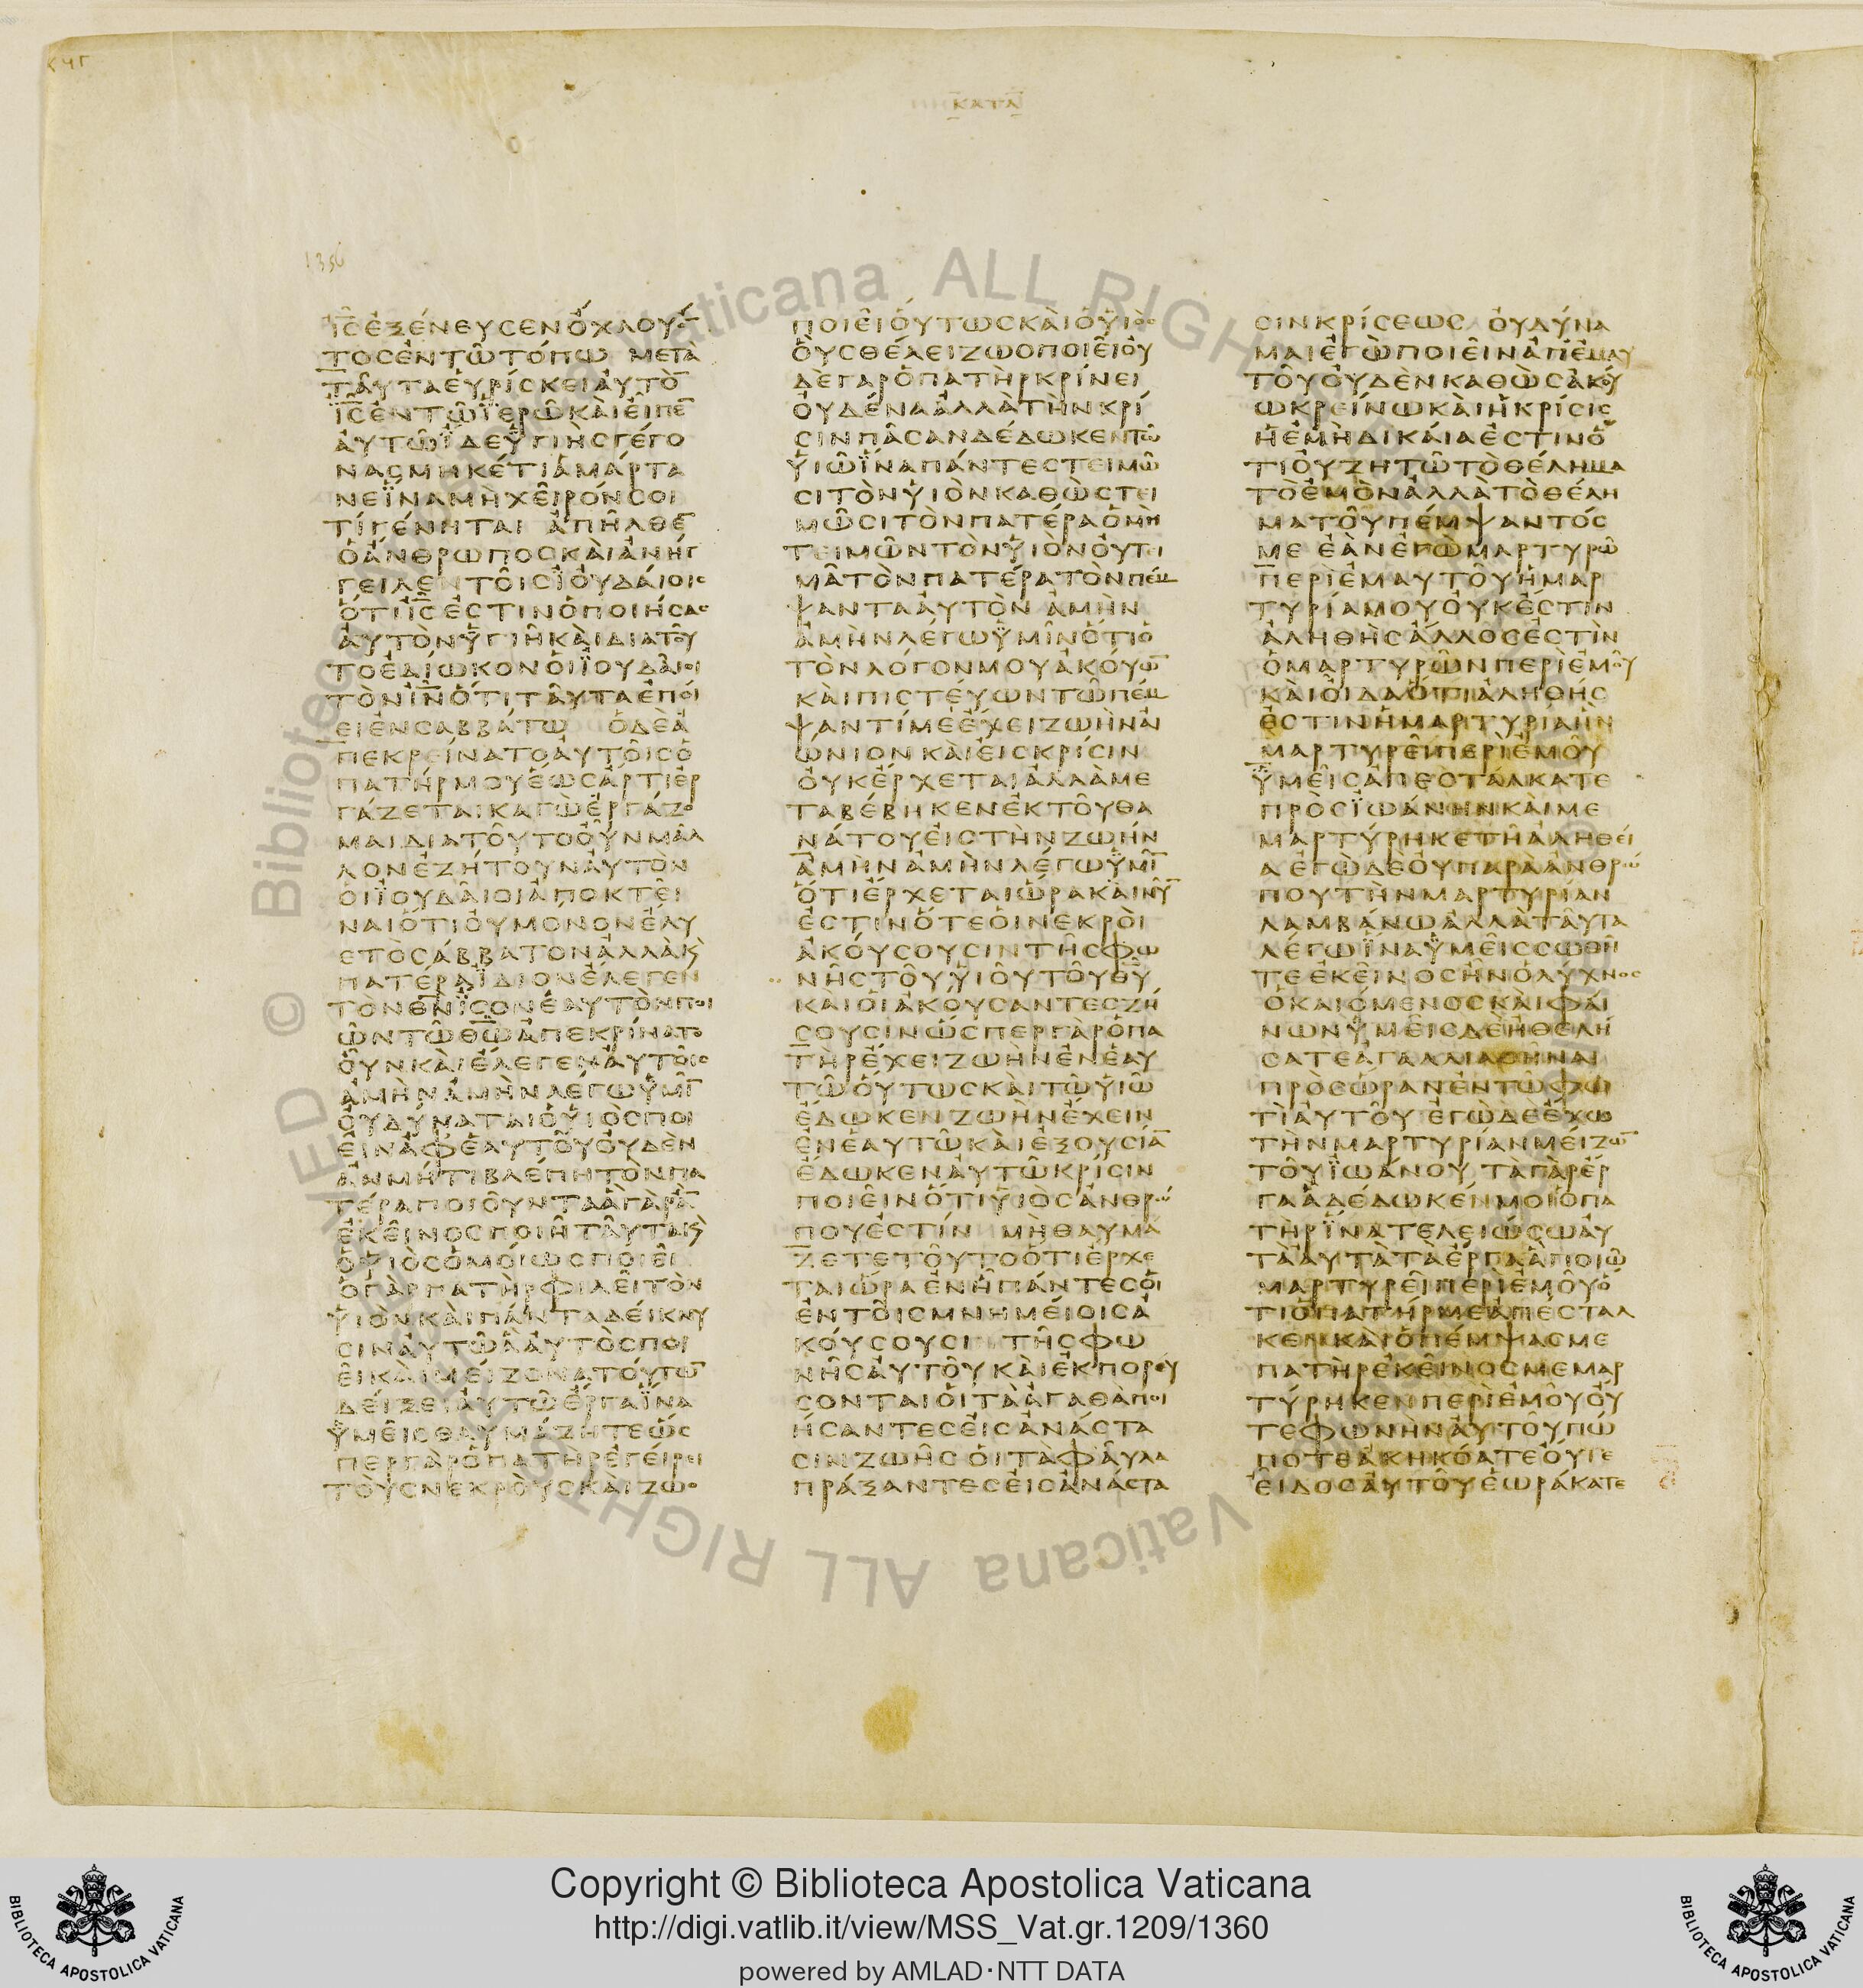 ΚΑΤΑ
1356
ΙϹ ΕΞΕΝΕΥϹΕΝΟΧΛΟΥΟ̅
ΤΟϹΕΝΤΩΤΟΠΩ ΜΕΤΑ
ΤΑΥΤΑΕΥΡΙϹΚΕΙΑΥΤΟ̅
ΙϹΕΝΤΩΪΕΡΩΚΑΙΕΙΠΕ̅
ΑΥΤΩΪΔΕΫΓΙΗϹΓΕΓΟ
ΝΑϹΜΗΚΕΤΙΑΜΑΡΤΑ
ΝΕΪΝΑΜΗΧΕΙΡΟΝϹΟΙ
ΤΙΓΕΝΗΤΑΙ ΑΠΗΛΘΕ̅
ΟΑΝΘΡΩΠΟϹΚΑΙΑΝΗΓ
ΓΕΙΛΕΝΤΟΙϹΪΟΥΔΑΙΟΙϹ
ΟΤΙΙϹΕϹΤΙΝΟΠΟΙΗϹΑϹ
ΑΥΤΟΝΫΓΙΗΚΑΙΔΙΑΤΟΥ
ΤΟΕΔΙΩΚΟΝΟΙΪΟΥΔΑΙΟΙ
ΤΟΝΙΝΟΤΙΤΑΥΤΑΕΠΟΙ
ΕΙΕΝϹΑΒΒΑΤΩ ΟΔΕΑ
ΠΕΚΡΕΙΝΑΤΟΑΥΤΟΙϹΟ
ΠΑΤΗΡΜΟΥΕΩϹΑΡΤΙΕΡ
ΓΑΖΕΤΑΙΚΑΓΩΕΡΓΑΖΟ
ΜΑΙΔΙΑΤΟΥΤΟΟΥΝΜΑΛ
ΛΟΝΕΖΗΤΟΥΝΑΥΤΟΝ
ΟΙΪΟΥΔΑΙΟΙΑΠΟΚΤΕΙ
ΝΑΙΟΤΙΟΥΜΟΝΟΝΕΛΥ
ΕΤΟϹΑΒΒΑΤΟΝΑΛΛΑϏ
ΠΑΤΕΡΑΪΔΙΟΝΕΛΕΓΕΝ
ΤΟΝΘΝΪϹΟΝΕΑΥΤΟΝΠΟΙ
ΩΝΤΩΘΩΑΠΕΚΡΙΝΑΤΟ
ΟΥΝΚΑΙΕΛΕΓΕΝΑΥΤΟΙϹ
ΑΜΗΝΑΜΗΝΛΕΓΩΫΜΙ̅
ΟΥΔΥΝΑΤΑΙΟΫΙΟϹΠΟΙ
ΕΙΝΑΦΕΑΥΤΟΥΟΥΔΕΝ
ΑΝΜΗΤΙΒΛΕΠΗΤΟΝΠΑ
ΤΕΡΑΠΟΙΟΥΝΤΑΑΓΑΡΑ̅
ΕΚΕΙΝΟϹΠΟΙΗΤΑΥΤΑϏ
ΟΥΙΟϹΟΜΟΙΩϹΠΟΙΕΙ
ΟΓΑΡΠΑΤΗΡΦΙΛΕΙΤΟΝ
ΫΙΟΝΚΑΙΠΑΝΤΑΔΕΙΚΝΥ
ϹΙΝΑΥΤΩΑΑΥΤΟϹΠΟΙ
ΕΙΚΑΙΜΕΙΖΟΝΑΤΟΥΤΩ̅
ΔΕΙΞΕΙΑΥΤΩΕΡΓΑΪΝΑ
ΫΜΕΙϹΘΑΥΜΑΖΗΤΕΩϹ
ΠΕΡΓΑΡΟΠΑΤΗΡΕΓΕΙΡΕΙ
ΤΟΥϹΝΕΚΡΟΥϹΚΑΙΖΩΟ
ΠΟΙΕΙΟΥΤΩϹΚΑΙΟΫΙΟϹ
ΟΥϹΘΕΛΕΙΖΩΟΠΟΙΕΙΟΥ
ΔΕΓΑΡΟΠΑΤΗΡΚΡΙΝΕΙ
ΟΥΔΕΝΑΑΛΛΑΤΗΝΚΡΙ
ϹΙΝΠΑϹΑΝΔΕΔΩΚΕΝΤΩ
ΫΙΩΪΝΑΠΑΝΤΕϹΤΕΙΜΩ
ϹΙΤΟΝΫΙΟΝΚΑΘΩϹΤΕΙ
ΜΩϹΙΤΟΝΠΑΤΕΡΑΟΜΗ
ΤΕΙΜΩΝΤΟΝΫΙΟΝΟΥΤΕΙ
ΜΑΤΟΝΠΑΤΕΡΑΤΟΝΠΕΜ
ΨΑΝΤΑΑΥΤΟΝ ΑΜΗΝ
ΑΜΗΝΛΕΓΩΫΜΙΝΟΤΙΟ
ΤΟΝΛΟΓΟΝΜΟΥΑΚΟΥΩ̅
ΚΑΙΠΙϹΤΕΥΩΝΤΩΠΕΜ
ΨΑΝΤΙΜΕΕΧΕΙΖΩΗΝΑΙ
ΩΝΙΟΝΚΑΙΕΙϹΚΡΙϹΙΝ
ΟΥΚΕΡΧΕΤΑΙΑΛΛΑΜΕ
ΤΑΒΕΒΗΚΕΝΕΚΤΟΥΘΑ
ΝΑΤΟΥΕΙϹΤΗΝΖΩΗΝ
ΑΜΗΝΑΜΗΝΛΕΓΩΫΜΙ̅
ΟΤΙΕΡΧΕΤΑΙΩΡΑΚΑΙΝΥ̅
ΕϹΤΙΝΟΤΕΟΙΝΕΚΡΟΙ
ΑΚΟΥϹΟΥϹΙΝΤΗϹΦΩ
ΝΗϹΤΟΥΫΙΟΥΤΟΥΘΥ
ΚΑΙΟΙΑΚΟΥϹΑΝΤΕϹΖΗ
ϹΟΥϹΙΝΩϹΠΕΡΓΑΡΟΠΑ
ΤΗΡΕΧΕΙΖΩΗΝΕΝΕΑΥ
ΤΩΟΥΤΩϹΚΑΙΤΩΫΙΩ
ΕΔΩΚΕΝΖΩΗΝΕΧΕΙΝ
ΕΝΕΑΥΤΩΚΑΙΕΞΟΥϹΙΑ̅
ΕΔΩΚΕΝΑΥΤΩΚΡΙϹΙΝ
ΠΟΙΕΙΝΟΤΙΫΙΟϹΑΝΘΡΩ
ΠΟΥΕϹΤΙΝ ΜΗΘΑΥΜΑ
ΖΕΤΕΤΟΥΤΟΟΤΙΕΡΧΕ
ΤΑΙΩΡΑΕΝΗΠΑΝΤΕϹΟΙ
ΕΝΤΟΙϹΜΝΗΜΕΙΟΙϹΑ
ΚΟΥϹΟΥϹΙ ΤΗϹΦΩ
ΝΗϹΑΥΤΟΥΚΑΙΕΚΠΟΡΕΥ
ϹΟΝΤΑΙΟΙΤΑΑΓΑΘΑΠΟΙ
ΗϹΑΝΤΕϹΕΙϹΑΝΑϹΤΑ
ϹΙΝΖΩΗϹ ΟΙΤΑΦΑΥΛΑ
ΠΡΑΞΑΝΤΕϹΕΙϹΑΝΑϹΤΑ
ϹΙΝΚΡΙϹΕΩϹ ΟΥΔΥΝΑ
ΜΑΙΕΓΩΠΟΙΕΙΝΑΠΕΜΑΥ
ΤΟΥΟΥΔΕΝΚΑΘΩϹΑΚΟΥ
ΩΚΡΕΙΝΩΚΑΙΗΚΡΙϹΙϹ
ΗΕΜΗΔΙΚΑΙΑΕϹΤΙΝΟ
ΤΙΟΥΖΗΤΩΤΟΘΕΛΗΜΑ
ΤΟΕΜΟΝΑΛΛΑΤΟΘΕΛΗ
ΜΑΤΟΥΠΕΜΨΑΝΤΟϹ
ΜΕ ΕΑΝΕΓΩΜΑΡΤΥΡΩ
ΠΕΡΙΕΜΑΥΤΟΥΗΜΑΡ
ΤΥΡΙΑΜΟΥΟΥΚΕϹΤΙΝ
ΑΛΗΘΗϹΑΛΛΟϹΕϹΤΙΝ
ΟΜΑΡΤΥΡΩΝΠΕΡΙΕΜΟΥ
ΚΑΙΟΙΔΑΟΤΙΑΛΗΘΗϹ
ΕϹΤΙΝΗΜΑΡΤΥΡΙΑΗΝ
ΜΑΡΤΥΡΕΙΠΕΡΙΕΜΟΥ
ΫΜΕΙϹΑΠΕϹΤΑΛΚΑΤΕ
ΠΡΟϹΪΩΑΝΗΝΚΑΙΜΕ
ΜΑΡΤΥΡΗΚΕΤΗΑΛΗΘΕΙ
ΑΕΓΩΔΕΟΥΠΑΡΑΑΝΘΡΩ
ΠΟΥΤΗΝΜΑΡΤΥΡΙΑΝ
ΛΑΜΒΑΝΩΑΛΛΑΤΑΥΤΑ
ΛΕΓΩΪΝΑΫΜΕΙϹϹΩΘΗ
ΤΕΕΚΕΙΝΟϹΗΝΟΛΥΧΝΟϹ
ΟΚΑΙΟΜΕΝΟϹΚΑΙΦΑΙ
ΝΩΝΫΜΕΙϹΔΕΗΘΕΛΗ
ϹΑΤΕΑΓΑΛΛΙΑΘΗΝΑΙ
ΠΡΟϹΩΡΑΝΕΝΤΩΦΩ
ΤΙΑΥΤΟΥ ΕΓΩΔΕΕΧΩ
ΤΗΝΜΑΡΤΥΡΙΑΝΜΕΙΖΩ̅
ΤΟΥΪΩΑΝΟΥ ΤΑΓΑΡΕΡ
ΓΑΑΔΕΔΩΚΕΝΜΟΙΟΠΑ
ΤΗΡΪΝΑΤΕΛΕΙΩϹΩΑΥ
ΤΑΑΥΤΑΤΑΕΡΓΑΑΠΟΙΩ
ΜΑΡΤΥΡΕΙΠΕΡΙΕΜΟΥΟ
ΤΙΟΠΑΤΗΡΜΕΑΠΕϹΤΑΛ
ΚΕΝΚΑΙΟΠΕΜΨΑϹΜΕ
ΠΑΤΗΡΕΚΕΙΝΟϹΜΕΜΑΡ
ΤΥΡΗΚΕΝΠΕΡΙΕΜΟΥΟΥ
ΤΕΦΩΝΗΝΑΥΤΟΥΠΩ
ΠΟΤΕΑΚΗΚΟΑΤΕΟΥΤΕ
ΕΙΔΟϹΑΥΤΟΥΕΩΡΑΚΑΤΕ
Copyright © Biblioteca Apostolica Vaticana
http://digi.vatlib.it/view/MSS_Vat.gr.1209/1360
powered by AMLAD·NTT DATA
BIBLIOTECA APOSTOLICA VATICANA
BIBLIOTECA APOSTOLICA VATICANA